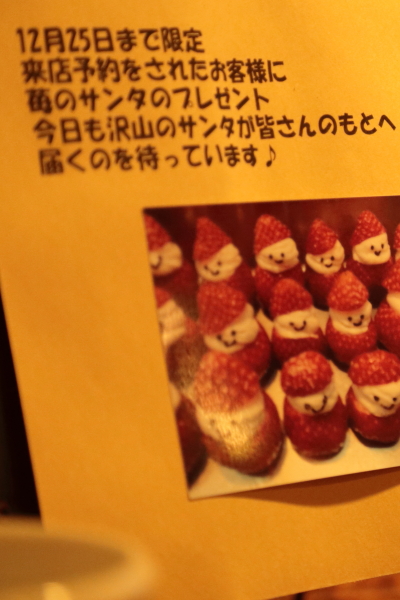 12月25日まで限定
来店予約をされたお客様に
苺のサンタのプレゼント
今日も沢山のサンタが皆さんのもとへ
届くのを待っています♪